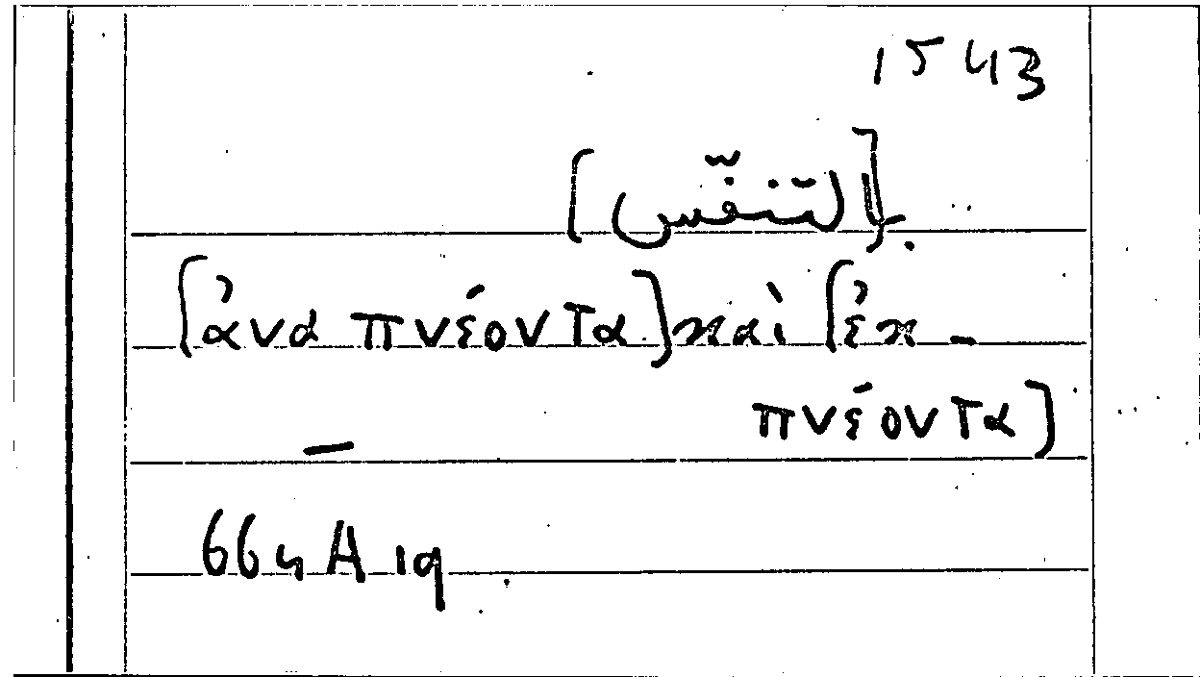 1543
[التنفّس]
[ἀνα πνέοντα] καὶ [ἐκ-
πνέοντα]
—
664 A 19